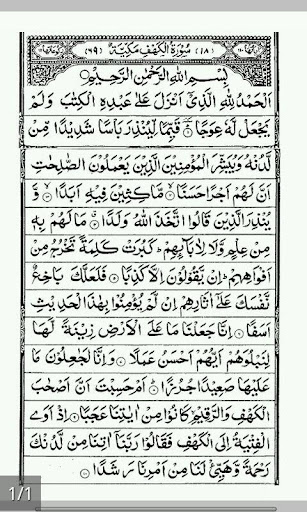 (۱۸) سُوْرَةُ الْكَهْفِ مَكِّيَّةٌ (۶۹)
بِسْمِ اللّٰهِ الرَّحْمٰنِ الرَّحِيْمِ
اَلْحَمْدُ لِلّٰهِ الَّذِيْٓ اَنْزَلَ عَلٰى عَبْدِهِ الْكِتٰبَ وَلَمْ
يَجْعَلْ لَّهٗ عِوَجًا ۞ قَيِّمًا لِّيُنْذِرَ بَاْسًا شَدِيْدًا مِّنْ
لَّدُنْهُ وَيُبَشِّرَ الْمُؤْمِنِيْنَ الَّذِيْنَ يَعْمَلُوْنَ الصّٰلِحٰتِ
اَنَّ لَهُمْ اَجْرًا حَسَنًا ۞ مَّاكِثِيْنَ فِيْهِ اَبَدًا ۞ وَّ
يُنْذِرَ الَّذِيْنَ قَالُوا اتَّخَذَ اللّٰهُ وَلَدًا ۞ مَا لَهُمْ بِهٖ
مِنْ عِلْمٍ وَّلَا لِاٰبَآئِهِمْ ؕ كَبُرَتْ كَلِمَةً تَخْرُجُ مِنْ
اَفْوَاهِهِمْ ؕ اِنْ يَّقُوْلُوْنَ اِلَّا كَذِبًا ۞ فَلَعَلَّكَ بَاخِعٌ
نَّفْسَكَ عَلٰٓى اٰثَارِهِمْ اِنْ لَّمْ يُؤْمِنُوْا بِهٰذَا الْحَدِيْثِ
اَسَفًا ۞ اِنَّا جَعَلْنَا مَا عَلَى الْاَرْضِ زِيْنَةً لَّهَا
لِنَبْلُوَهُمْ اَيُّهُمْ اَحْسَنُ عَمَلًا ۞ وَاِنَّا لَجٰعِلُوْنَ مَا
عَلَيْهَا صَعِيْدًا جُرُزًا ۞ اَمْ حَسِبْتَ اَنَّ اَصْحٰبَ
الْكَهْفِ وَالرَّقِيْمِ كَانُوْا مِنْ اٰيٰتِنَا عَجَبًا ۞ اِذْ اَوَى
الْفِتْيَةُ اِلَى الْكَهْفِ فَقَالُوْا رَبَّنَآ اٰتِنَا مِنْ لَّدُنْكَ
رَحْمَةً وَّهَيِّئْ لَنَا مِنْ اَمْرِنَا رَشَدًا ۞
1/1